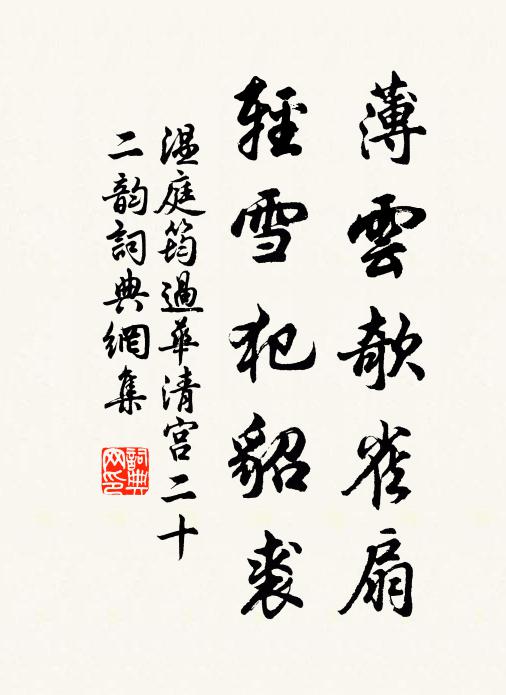 薄雲欹雀扇
輕雪犯貂裘
温庭筠過華清宮二十
二韵詞典網集
詞典網印